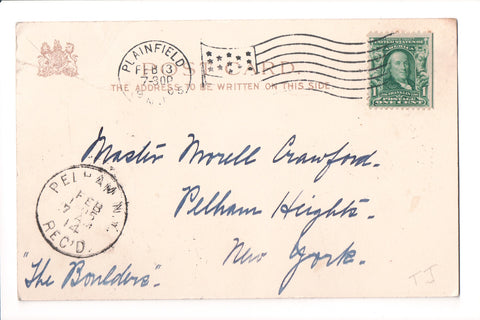 PLAINFIELD
FEB 13
7-30P
N.J.
POST CARD.
THE ADDRESS TO BE WRITTEN ON THIS SIDE
AMERICA
1 1
ONE CENT
Master Morell Crawford.
Pelham Heights.
New York.
PELHAM N.Y.
FEB
14
REC'D.
"The Boulders".
TJ